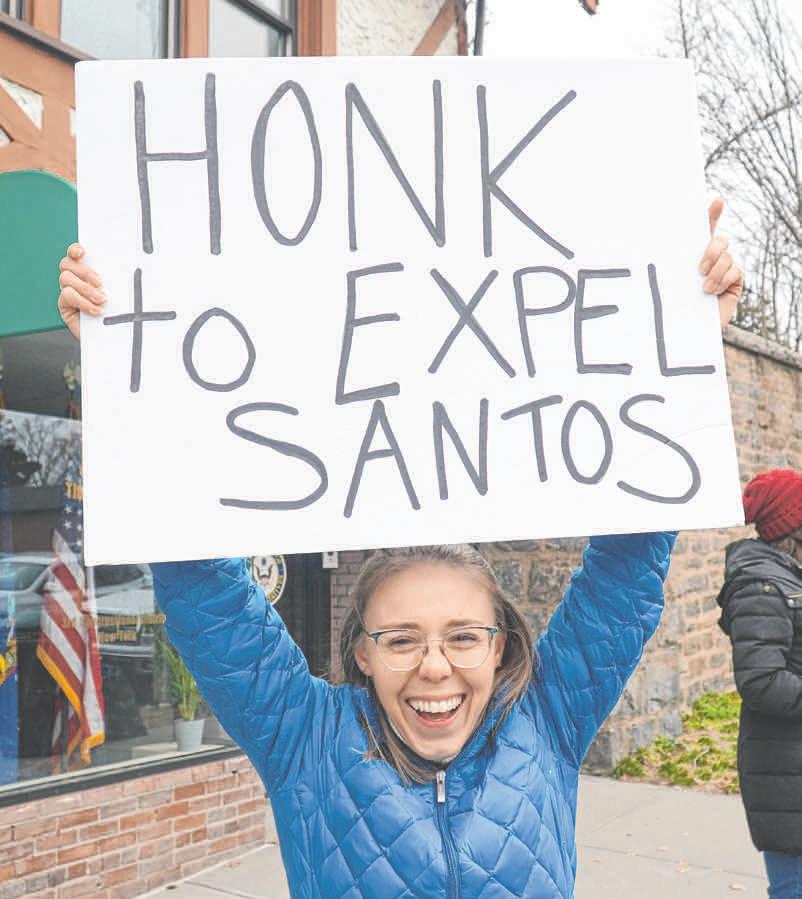 HONK
to EXPEL
SANTOS